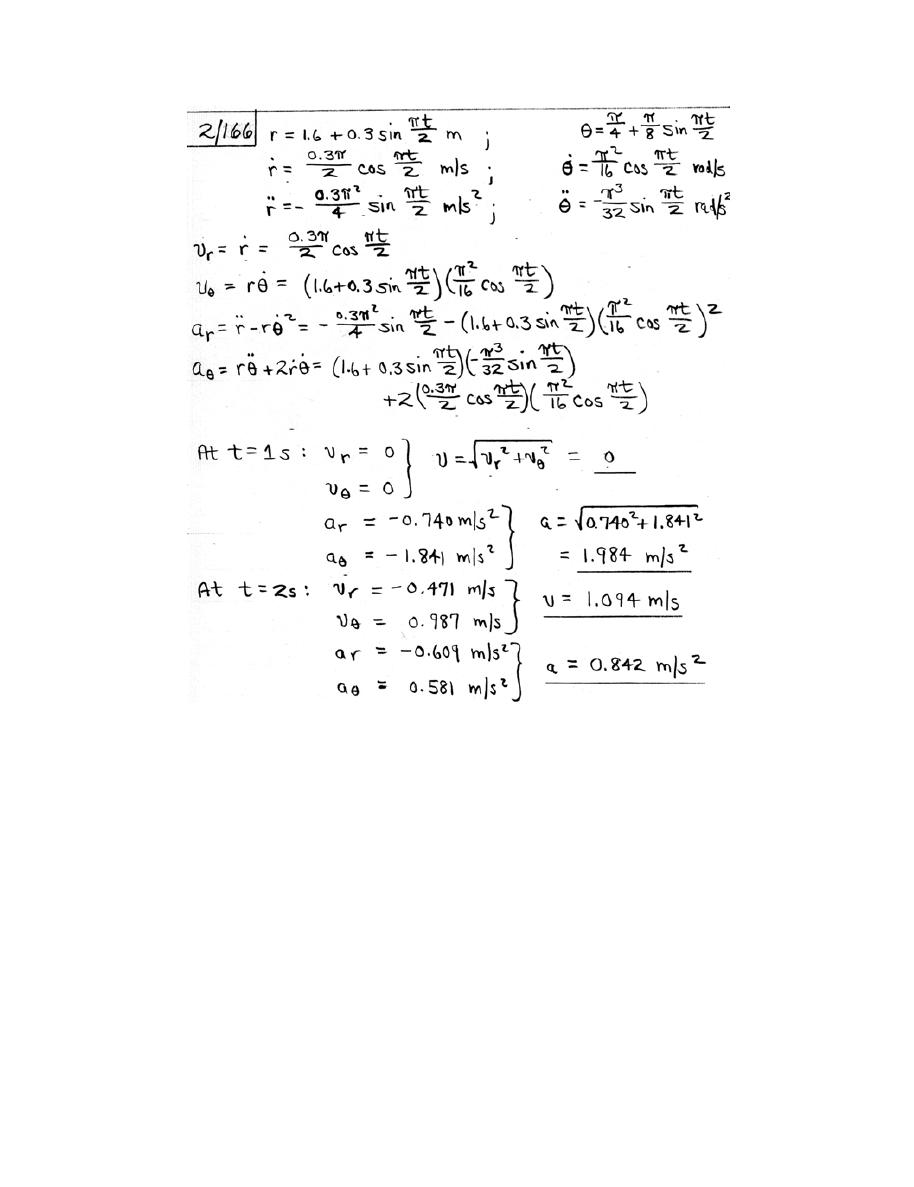 2/166 r = 1.6 + 0.3 sin πt/2 m ; θ = π/4 + π/8 sin πt/2
ṙ = 0.3π/2 cos πt/2 m/s ; θ̇ = π²/16 cos πt/2 rad/s
r̈ = - 0.3π²/4 sin πt/2 m/s² ; θ̈ = -π³/32 sin πt/2 rad/s²
vr = ṙ = 0.3π/2 cos πt/2
vθ = rθ̇ = (1.6+0.3 sin πt/2)(π²/16 cos πt/2)
ar = r̈ - rθ̇² = - 0.3π²/4 sin πt/2 - (1.6+0.3 sin πt/2)(π²/16 cos πt/2)²
aθ = rθ̈ + 2ṙθ̇ = (1.6+ 0.3 sin πt/2)(-π³/32 sin πt/2)
+2(0.3π/2 cos πt/2)(π²/16 cos πt/2)
At t=1s : vr = 0 } v = √(vr² + vθ²) = 0
vθ = 0
ar = -0.740 m/s² } a = √(0.740² + 1.841²)
aθ = -1.841 m/s² = 1.984 m/s²
At t=2s : vr = -0.471 m/s } v = 1.094 m/s
vθ = 0.987 m/s
ar = -0.609 m/s² } a = 0.842 m/s²
aθ = 0.581 m/s²